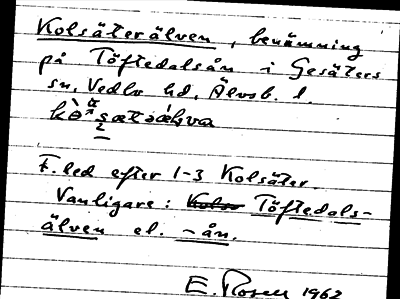 Kolsäterälven, benämning
på Töftedalsån i Gesäters
sn, Vedbo hd, Älvsb. l.
F. led efter 1-3 Kolsäter.
Vanligare: Töftedals-
älven el. -ån.
E. Rosell 1962